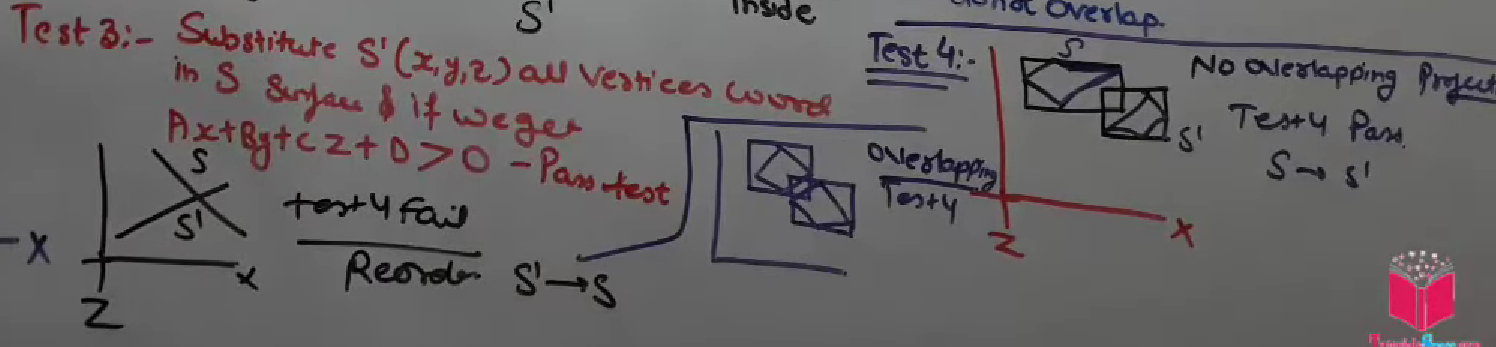 S'
inside
Overlap.
Test 3:- Substitute S'(x,y,z) all vertices coord
in S Surface & if we get
Ax+By+CZ+D>0 - Pass test
S
S'
-X
Z
X
test 4 Fail
Reorder S'→S
Overlapping
Test 4
Test 4:-
S
S'
Z
X
No overlapping Project
Test 4 Pass.
S→S'